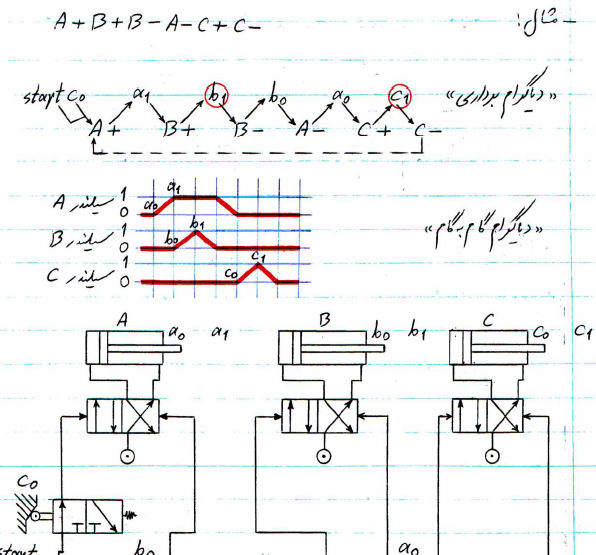 مثال: A+B+B-A-C+C-
«دیاگرام برداری»
start c0 a1 b1 b0 a0 c1
A+ B+ B- A- C+ C-
«دیاگرام گام بگام»
سیلندر A 1 0 a0 a1
سیلندر B 1 0 b0 b1
سیلندر C 1 0 c0 c1
A a0 a1 B b0 b1 C c0 c1
c0
start b0 a0